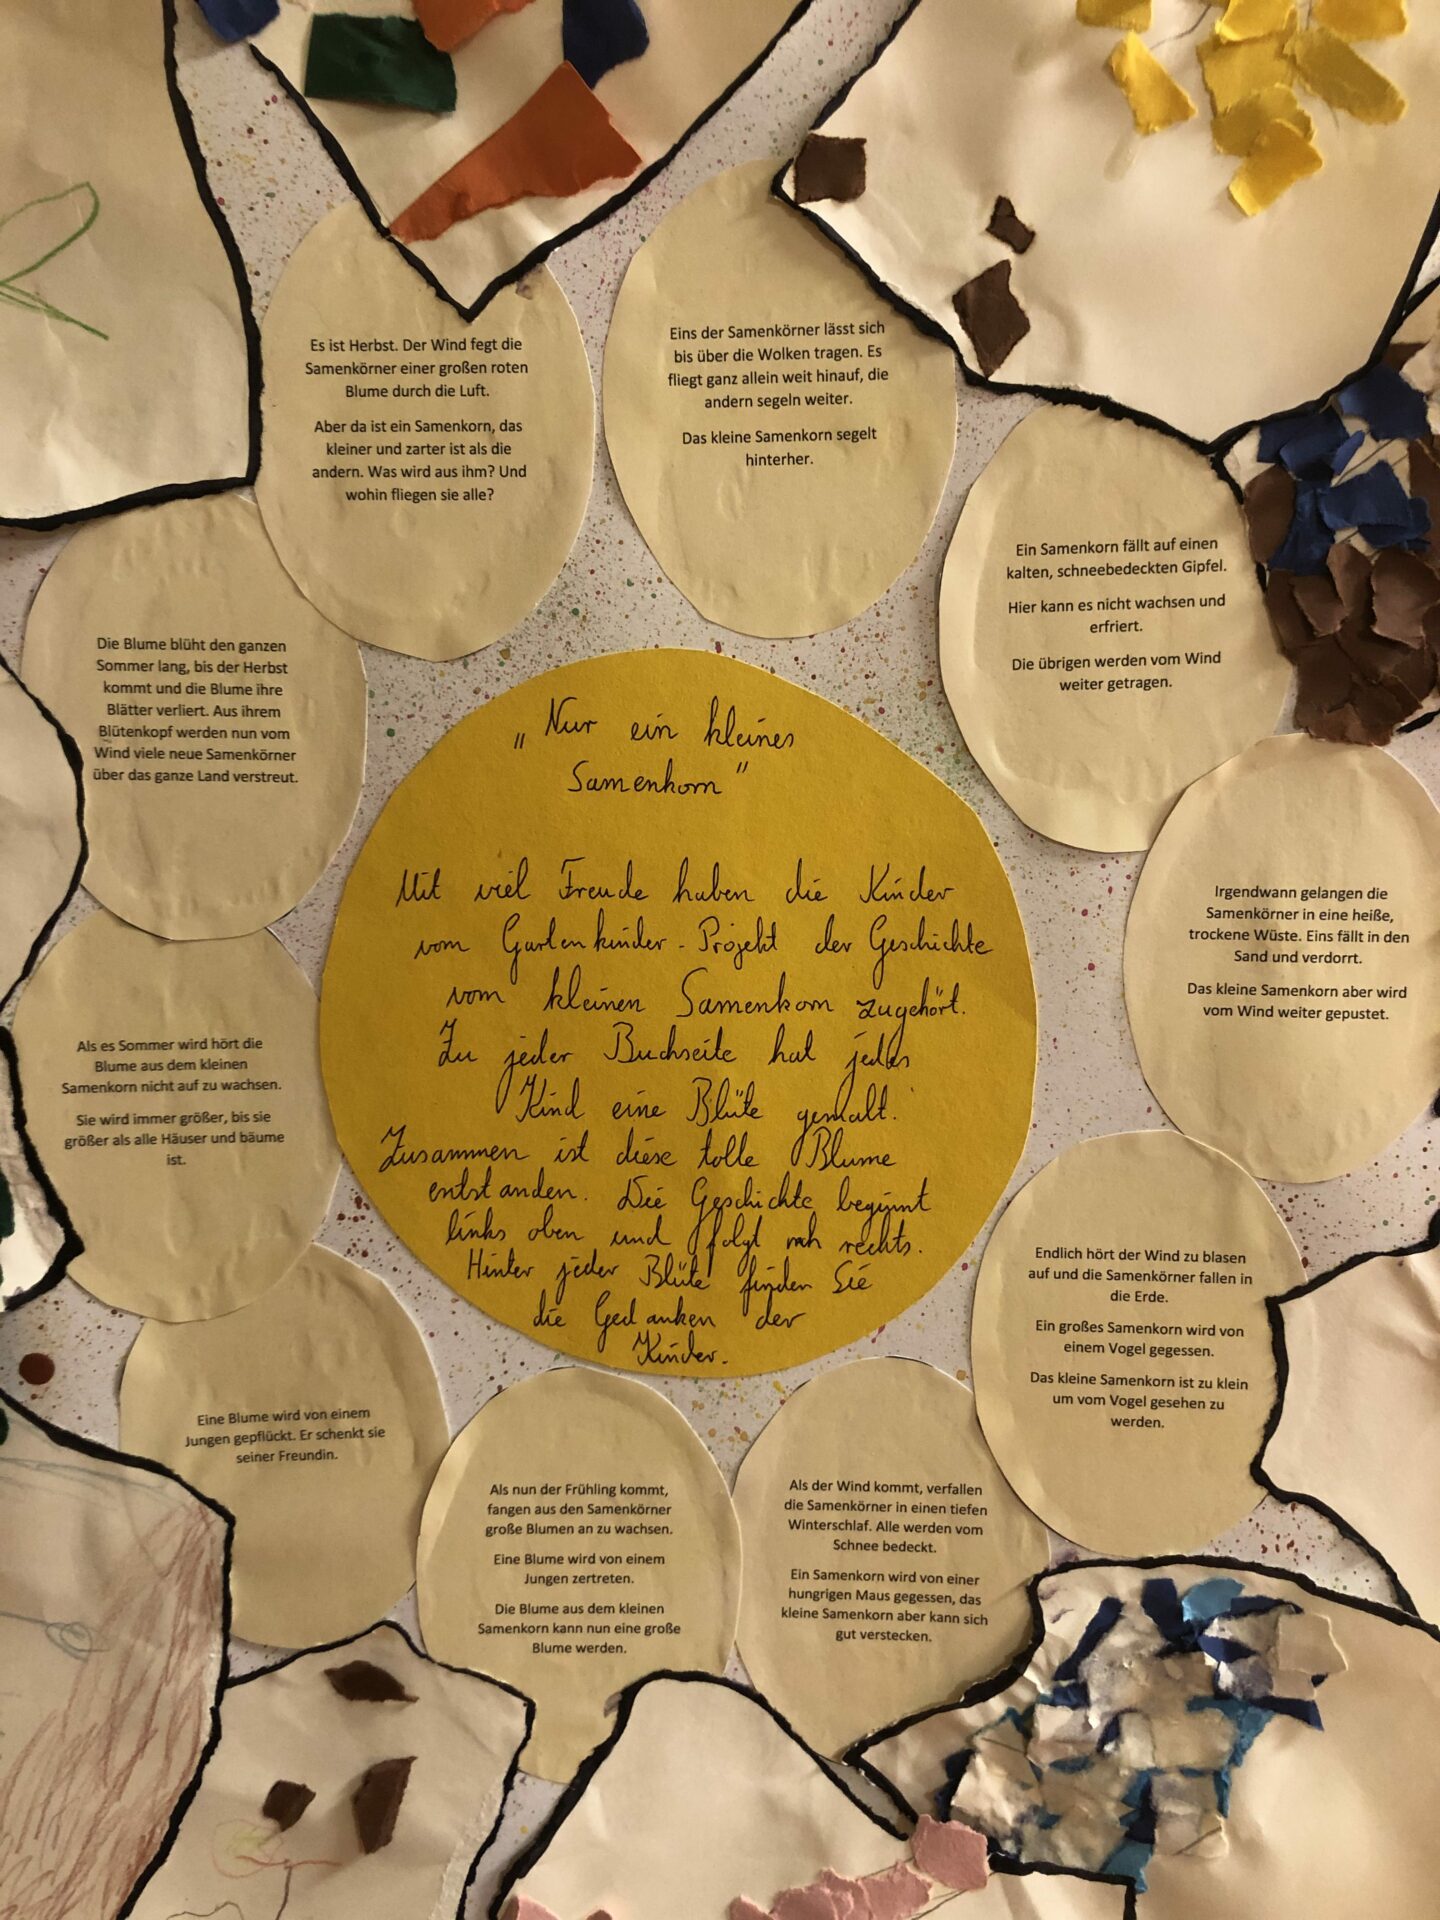 „Nur ein kleines
Samenkorn"
Mit viel Freude haben die Kinder
vom Gartenkinder-Projekt der Geschichte
vom kleinen Samenkorn zugehört.
Zu jeder Buchseite hat jedes
Kind eine Blüte gemalt.
Zusammen ist diese tolle Blume
entstanden. Die Geschichte beginnt
links oben und folgt nach rechts.
Hinter jeder Blüte finden Sie
die Gedanken der
Kinder.
Es ist Herbst. Der Wind fegt die
Samenkörner einer großen roten
Blume durch die Luft.
Aber da ist ein Samenkorn, das
kleiner und zarter ist als die
andern. Was wird aus ihm? Und
wohin fliegen sie alle?
Eins der Samenkörner lässt sich
bis über die Wolken tragen. Es
fliegt ganz allein weit hinauf, die
andern segeln weiter.
Das kleine Samenkorn segelt
hinterher.
Ein Samenkorn fällt auf einen
kalten, schneebedeckten Gipfel.
Hier kann es nicht wachsen und
erfriert.
Die übrigen werden vom Wind
weiter getragen.
Irgendwann gelangen die
Samenkörner in eine heiße,
trockene Wüste. Eins fällt in den
Sand und verdorrt.
Das kleine Samenkorn aber wird
vom Wind weiter gepustet.
Endlich hört der Wind zu blasen
auf und die Samenkörner fallen in
die Erde.
Ein großes Samenkorn wird von
einem Vogel gegessen.
Das kleine Samenkorn ist zu klein
um vom Vogel gesehen zu
werden.
Als der Wind kommt, verfallen
die Samenkörner in einen tiefen
Winterschlaf. Alle werden vom
Schnee bedeckt.
Ein Samenkorn wird von einer
hungrigen Maus gegessen, das
kleine Samenkorn aber kann sich
gut verstecken.
Als nun der Frühling kommt,
fangen aus den Samenkörner
große Blumen an zu wachsen.
Eine Blume wird von einem
Jungen zertreten.
Die Blume aus dem kleinen
Samenkorn kann nun eine große
Blume werden.
Eine Blume wird von einem
Jungen gepflückt. Er schenkt sie
seiner Freundin.
Als es Sommer wird hört die
Blume aus dem kleinen
Samenkorn nicht auf zu wachsen.
Sie wird immer größer, bis sie
größer als alle Häuser und bäume
ist.
Die Blume blüht den ganzen
Sommer lang, bis der Herbst
kommt und die Blume ihre
Blätter verliert. Aus ihrem
Blütenkopf werden nun vom
Wind viele neue Samenkörner
über das ganze Land verstreut.